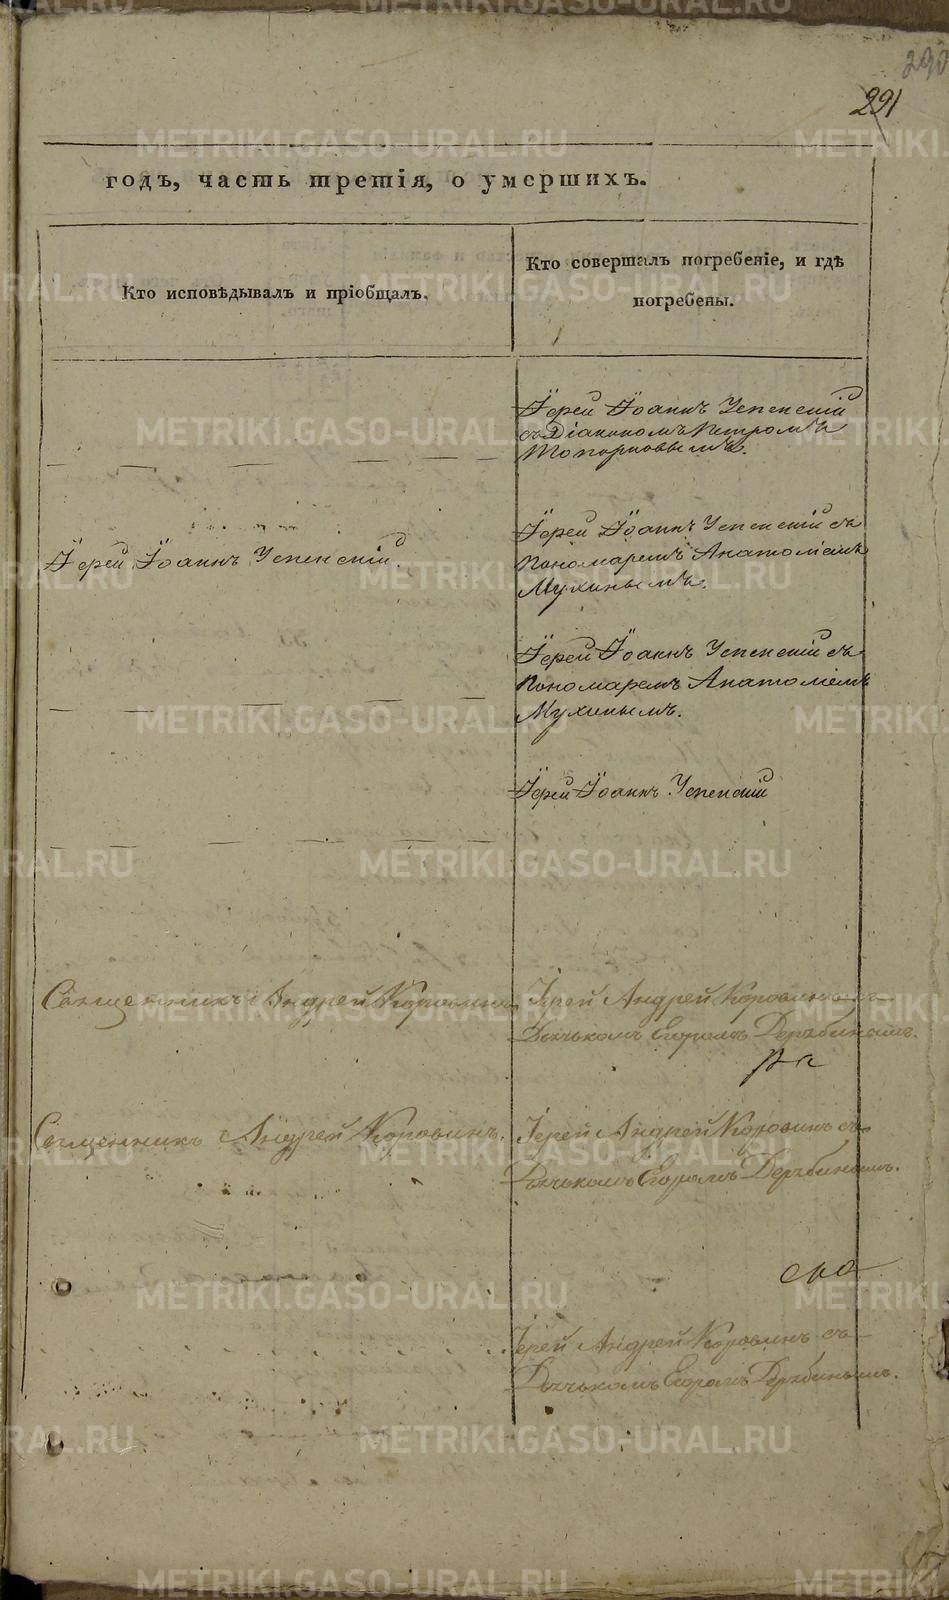 290
291
годъ, часть третія, о умершихъ.
Кто исповѣдывалъ и пріобщалъ.
Кто совершалъ погребеніе, и гдѣ
погребены.
Іерей Іоаннъ Успенскій
съ Діакономъ Петромъ
Топорковымъ.
Іерей Іоаннъ Успенскій.
Іерей Іоаннъ Успенскій съ
Пономаремъ Анатоліемъ
Мухинымъ.
Іерей Іоаннъ Успенскій съ
Пономаремъ Анатоліемъ
Мухинымъ.
Іерей Іоаннъ Успенскій
Священникъ Андрей Коровинъ
Іерей Андрей Коровинъ съ
Дьячькомъ Егоромъ Дерябинымъ.
Священникъ Андрей Коровинъ.
Іерей Андрей Коровинъ съ
Дьячькомъ Егоромъ Дерябинымъ.
Іерей Андрей Коровинъ съ
Дьячькомъ Егоромъ Дерябинымъ.
METRIKI.GASO-URAL.RU